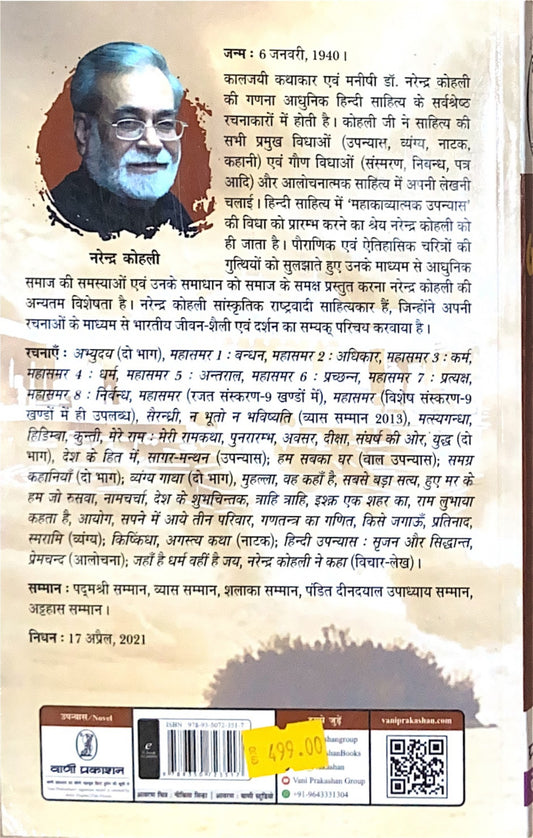 जन्म : 6 जनवरी, 1940।
कालजयी कथाकार एवं मनीषी डॉ. नरेन्द्र कोहली
की गणना आधुनिक हिन्दी साहित्य के सर्वश्रेष्ठ
रचनाकारों में होती है। कोहली जी ने साहित्य की
सभी प्रमुख विधाओं (उपन्यास, व्यंग्य, नाटक,
कहानी) एवं गौण विधाओं (संस्मरण, निबन्ध, पत्र
आदि) और आलोचनात्मक साहित्य में अपनी लेखनी
चलाई। हिन्दी साहित्य में 'महाकाव्यात्मक उपन्यास'
की विधा को प्रारम्भ करने का श्रेय नरेन्द्र कोहली को
ही जाता है। पौराणिक एवं ऐतिहासिक चरित्रों की
गुत्थियों को सुलझाते हुए उनके माध्यम से आधुनिक
नरेन्द्र कोहली
समाज की समस्याओं एवं उनके समाधान को समाज के समक्ष प्रस्तुत करना नरेन्द्र कोहली की
अन्यतम विशेषता है। नरेन्द्र कोहली सांस्कृतिक राष्ट्रवादी साहित्यकार हैं, जिन्होंने अपनी
रचनाओं के माध्यम से भारतीय जीवन-शैली एवं दर्शन का सम्यक् परिचय करवाया है।
रचनाएँ : अभ्युदय (दो भाग), महासमर 1 : बन्धन, महासमर 2 : अधिकार, महासमर 3 : कर्म,
महासमर 4 : धर्म, महासमर 5 : अन्तराल, महासमर 6 : प्रच्छन्न, महासमर 7 : प्रत्यक्ष,
महासमर 8 : निर्बन्ध, महासमर (रजत संस्करण-9 खण्डों में), महासमर (विशेष संस्करण-9
खण्डों में ही उपलब्ध), सैरन्ध्री, न भूतो न भविष्यति (व्यास सम्मान 2013), मत्स्यगन्धा,
हिडिम्बा, कुन्ती, मेरे राम : मेरी रामकथा, पुनरारम्भ, अवसर, दीक्षा, संघर्ष की ओर, युद्ध (दो
भाग), देश के हित में, सागर-मन्थन (उपन्यास); हम सबका घर (बाल उपन्यास); समग्र
कहानियाँ (दो भाग); व्यंग्य गाथा (दो भाग), मुहल्ला, वह कहाँ है, सबसे बड़ा सत्य, हुए मर के
हम जो रुसवा, नामचर्चा, देश के शुभचिन्तक, त्राहि त्राहि, इश्क़ एक शहर का, राम लुभाया
कहता है, आयोग, सपने में आये तीन परिवार, गणतन्त्र का गणित, किसे जगाऊँ, प्रतिनाद,
स्मरामि (व्यंग्य); किष्किंधा, अगस्त्य कथा (नाटक); हिन्दी उपन्यास : सृजन और सिद्धान्त,
प्रेमचन्द (आलोचना); जहाँ है धर्म वहीं है जय, नरेन्द्र कोहली ने कहा (विचार-लेख)।
सम्मान : पद्मश्री सम्मान, व्यास सम्मान, शलाका सम्मान, पंडित दीनदयाल उपाध्याय सम्मान,
अट्टहास सम्मान।
निधन : 17 अप्रैल, 2021
उपन्यास/Novel
ISBN : 978-93-5072-351-7
vaniprakashan.com
499.00
वाणी प्रकाशन
Vani Prakashan Group
+91-9643331304
आवरण : वाणी स्टूडियो